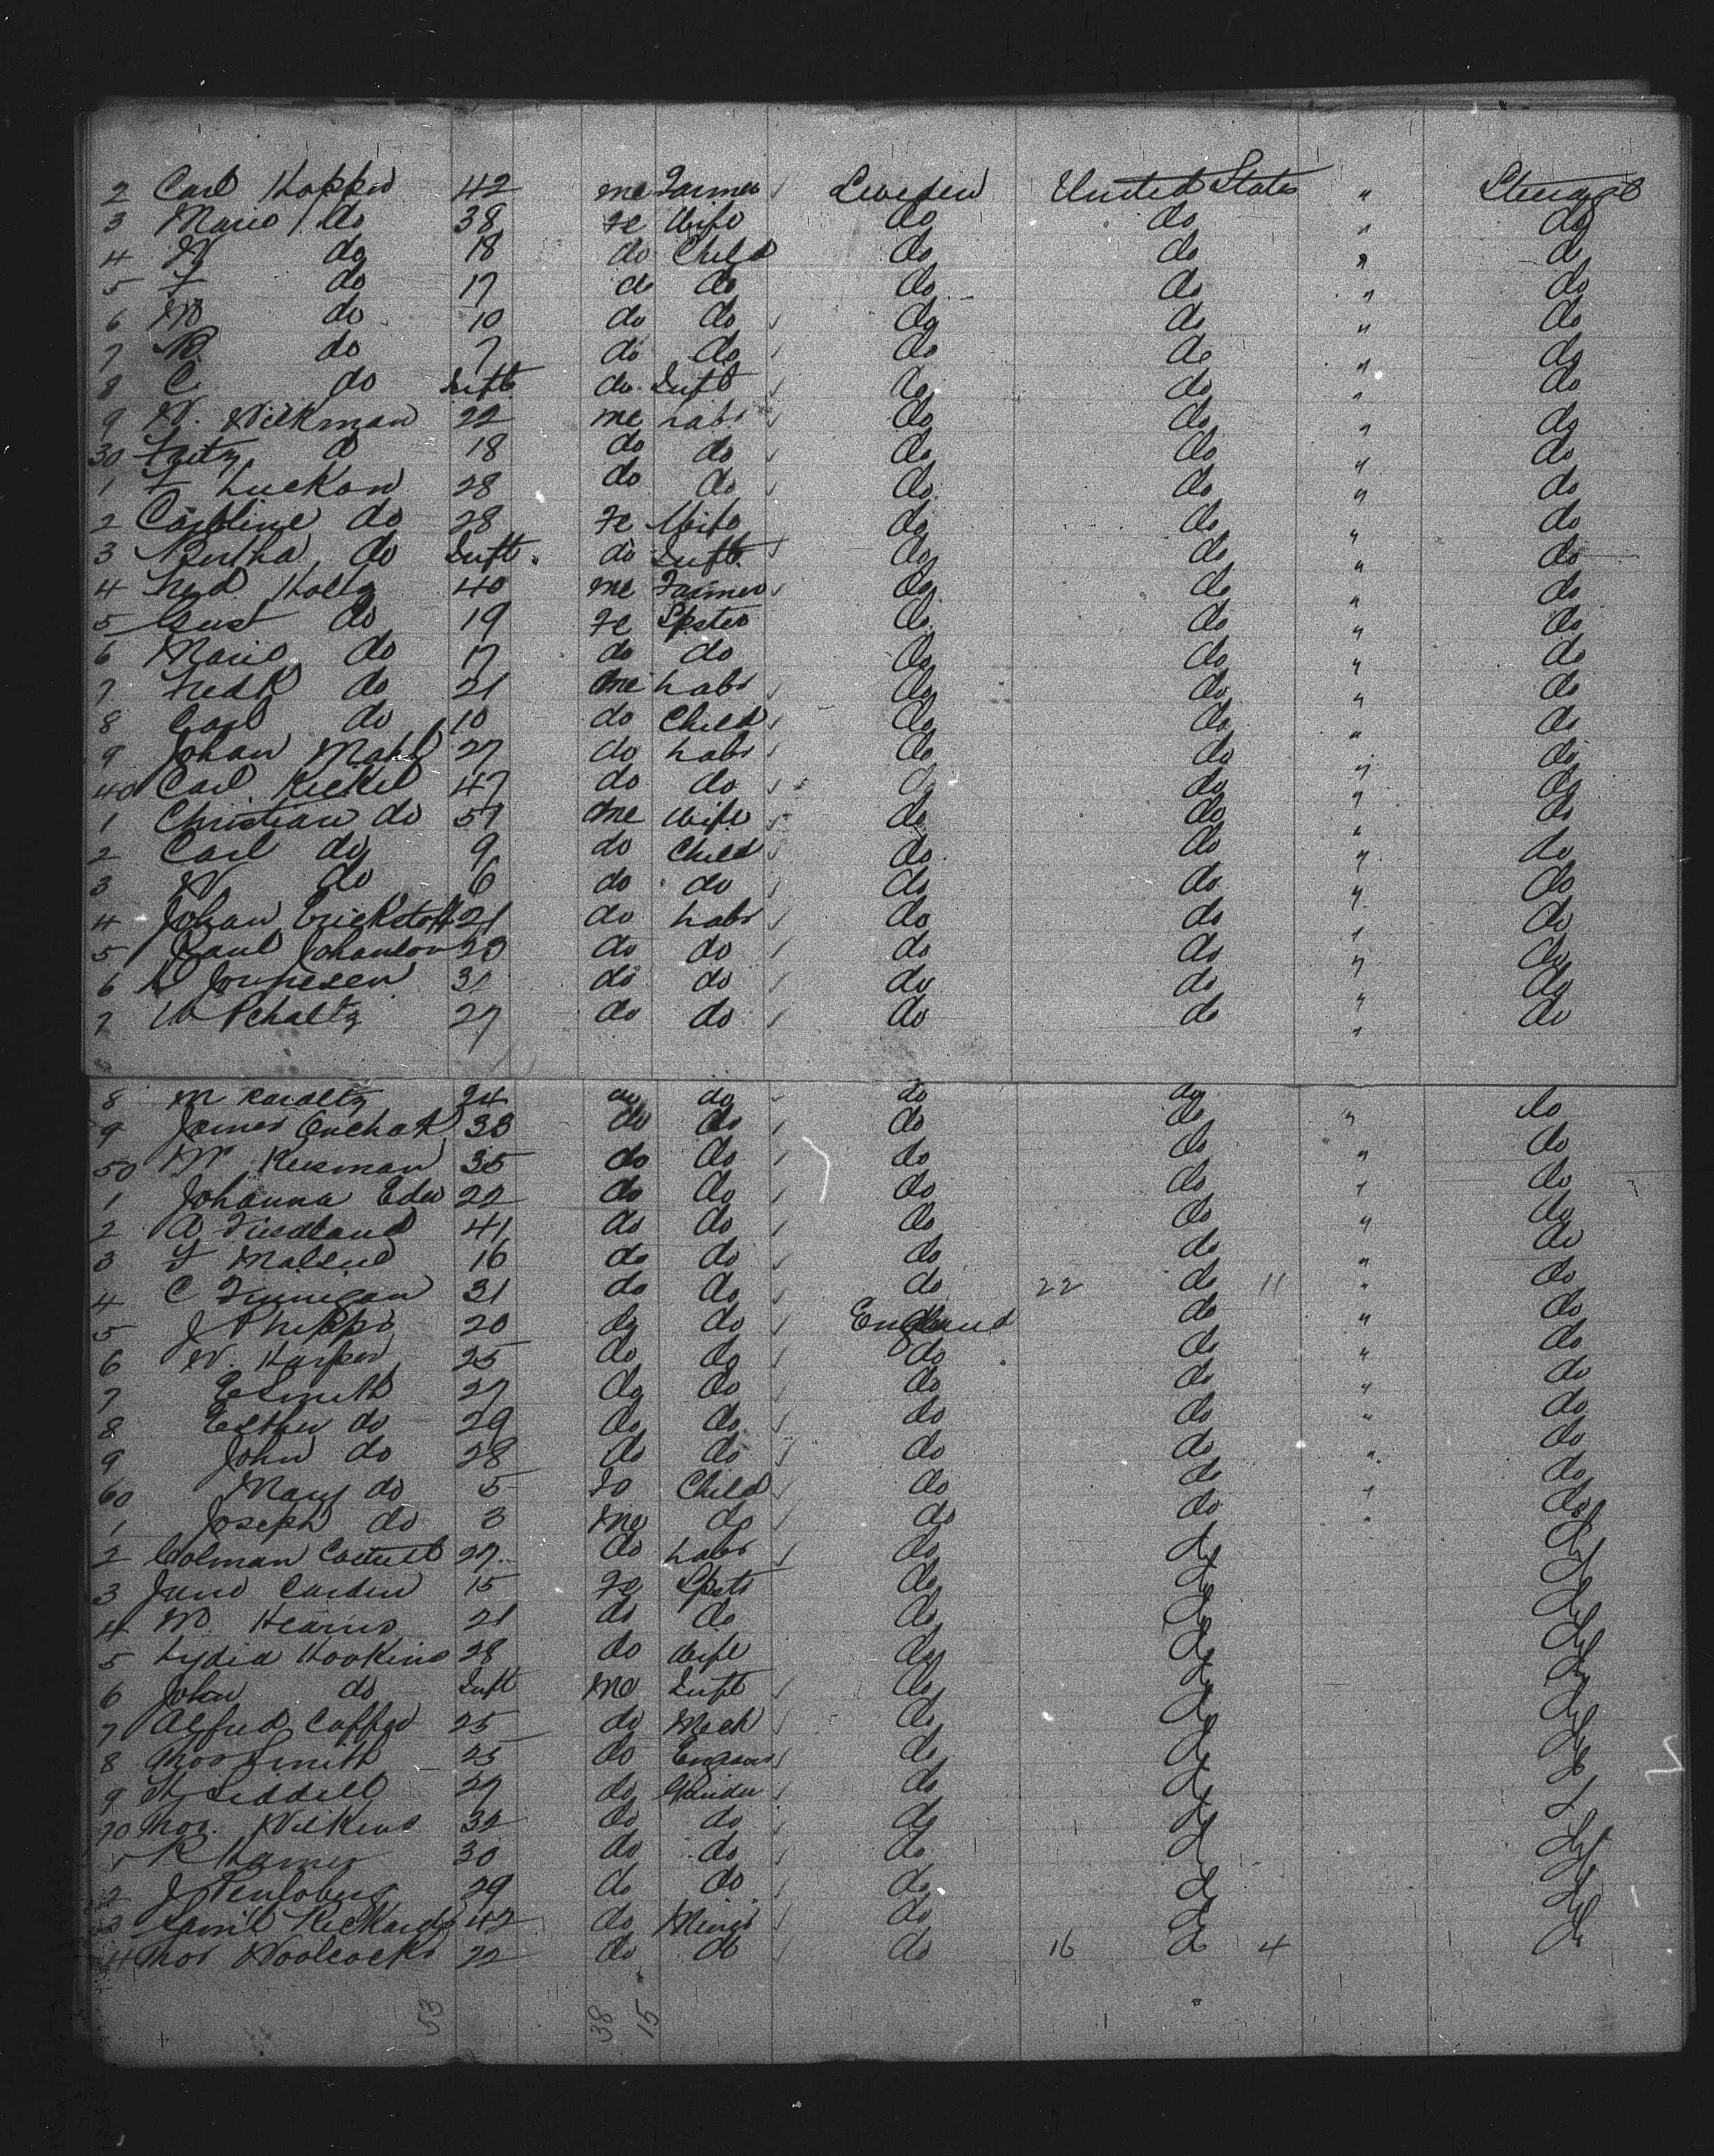 2 Carl Hopper 42 me Farmer Sweden United States " Steerage
3 Marie do 38 fe Wife do do " do
4 W do 18 do Child do do " do
5 F do 17 do do do do " do
6 M do 10 do do do do " do
7 B. do 7 do do do do " do
8 C do Inft do Inft do do " do
9 W. Wilkman 22 me Labr do do " do
30 Fritz do 18 do do do do " do
1 F Luckow 28 do do do do " do
2 Caroline do 28 fe Wife do do " do
3 Bertha do Inft do Inft do do " do
4 Fred Holtz 40 me Farmer do do " do
5 Gust do 19 fe Spster do do " do
6 Marie do 17 do do do do " do
7 Fredk do 21 me Labr do do " do
8 Carl do 10 do Child do do " do
9 Johan Mahl 27 do Labr do do " do
40 Carl Rickel 47 do do do do " do
1 Christian do 51 me Wife do do " do
2 Carl do 9 do Child do do " do
3 W do 6 do do do do " do
4 Johan 21 do Labr do do " do
5 Paul 23 do do do do " do
6 3 do do do do " do
7 W Schaltz 27 do do do do " do
8 M 24 do do do do do
9 James 33 do do do do " do
50 35 do do do do " do
1 Johanna 22 do do do do " do
2 41 do do do do " do
3 F 16 do do do do " do
4 C Finnigan 31 do do do 22 do 11 " do
5 J Phipps 20 do do England do " do
6 W. Harper 25 do do do do " do
7 E Smith 27 do do do do " do
8 Esther do 29 do do do do " do
9 John do 28 do do do do " do
60 Mary do 5 fe Child do do " do
1 Joseph do 3 me do do do " do
2 Colman 27 do Labr do do do
3 Jane Carden 15 fe Spstr do do do
4 M. Hearns 21 do do do do do
5 Lydia Hookins 28 do Wife do do do
6 John do Inft me Inft do do do
7 Alfred Copper 25 do Mech do do do
8 Thos Smith 25 do do do do
9 Hy Liddell 27 do Grinder do do do
70 Thos. Wilkins 32 do do do do do
1 R Hamer 30 do do do do do
2 J 29 do do do do do
3 Saml Rickards 42 do Miner do do do
4 Thos Woolcocks 22 do do do 16 do 4 do
53 38 15